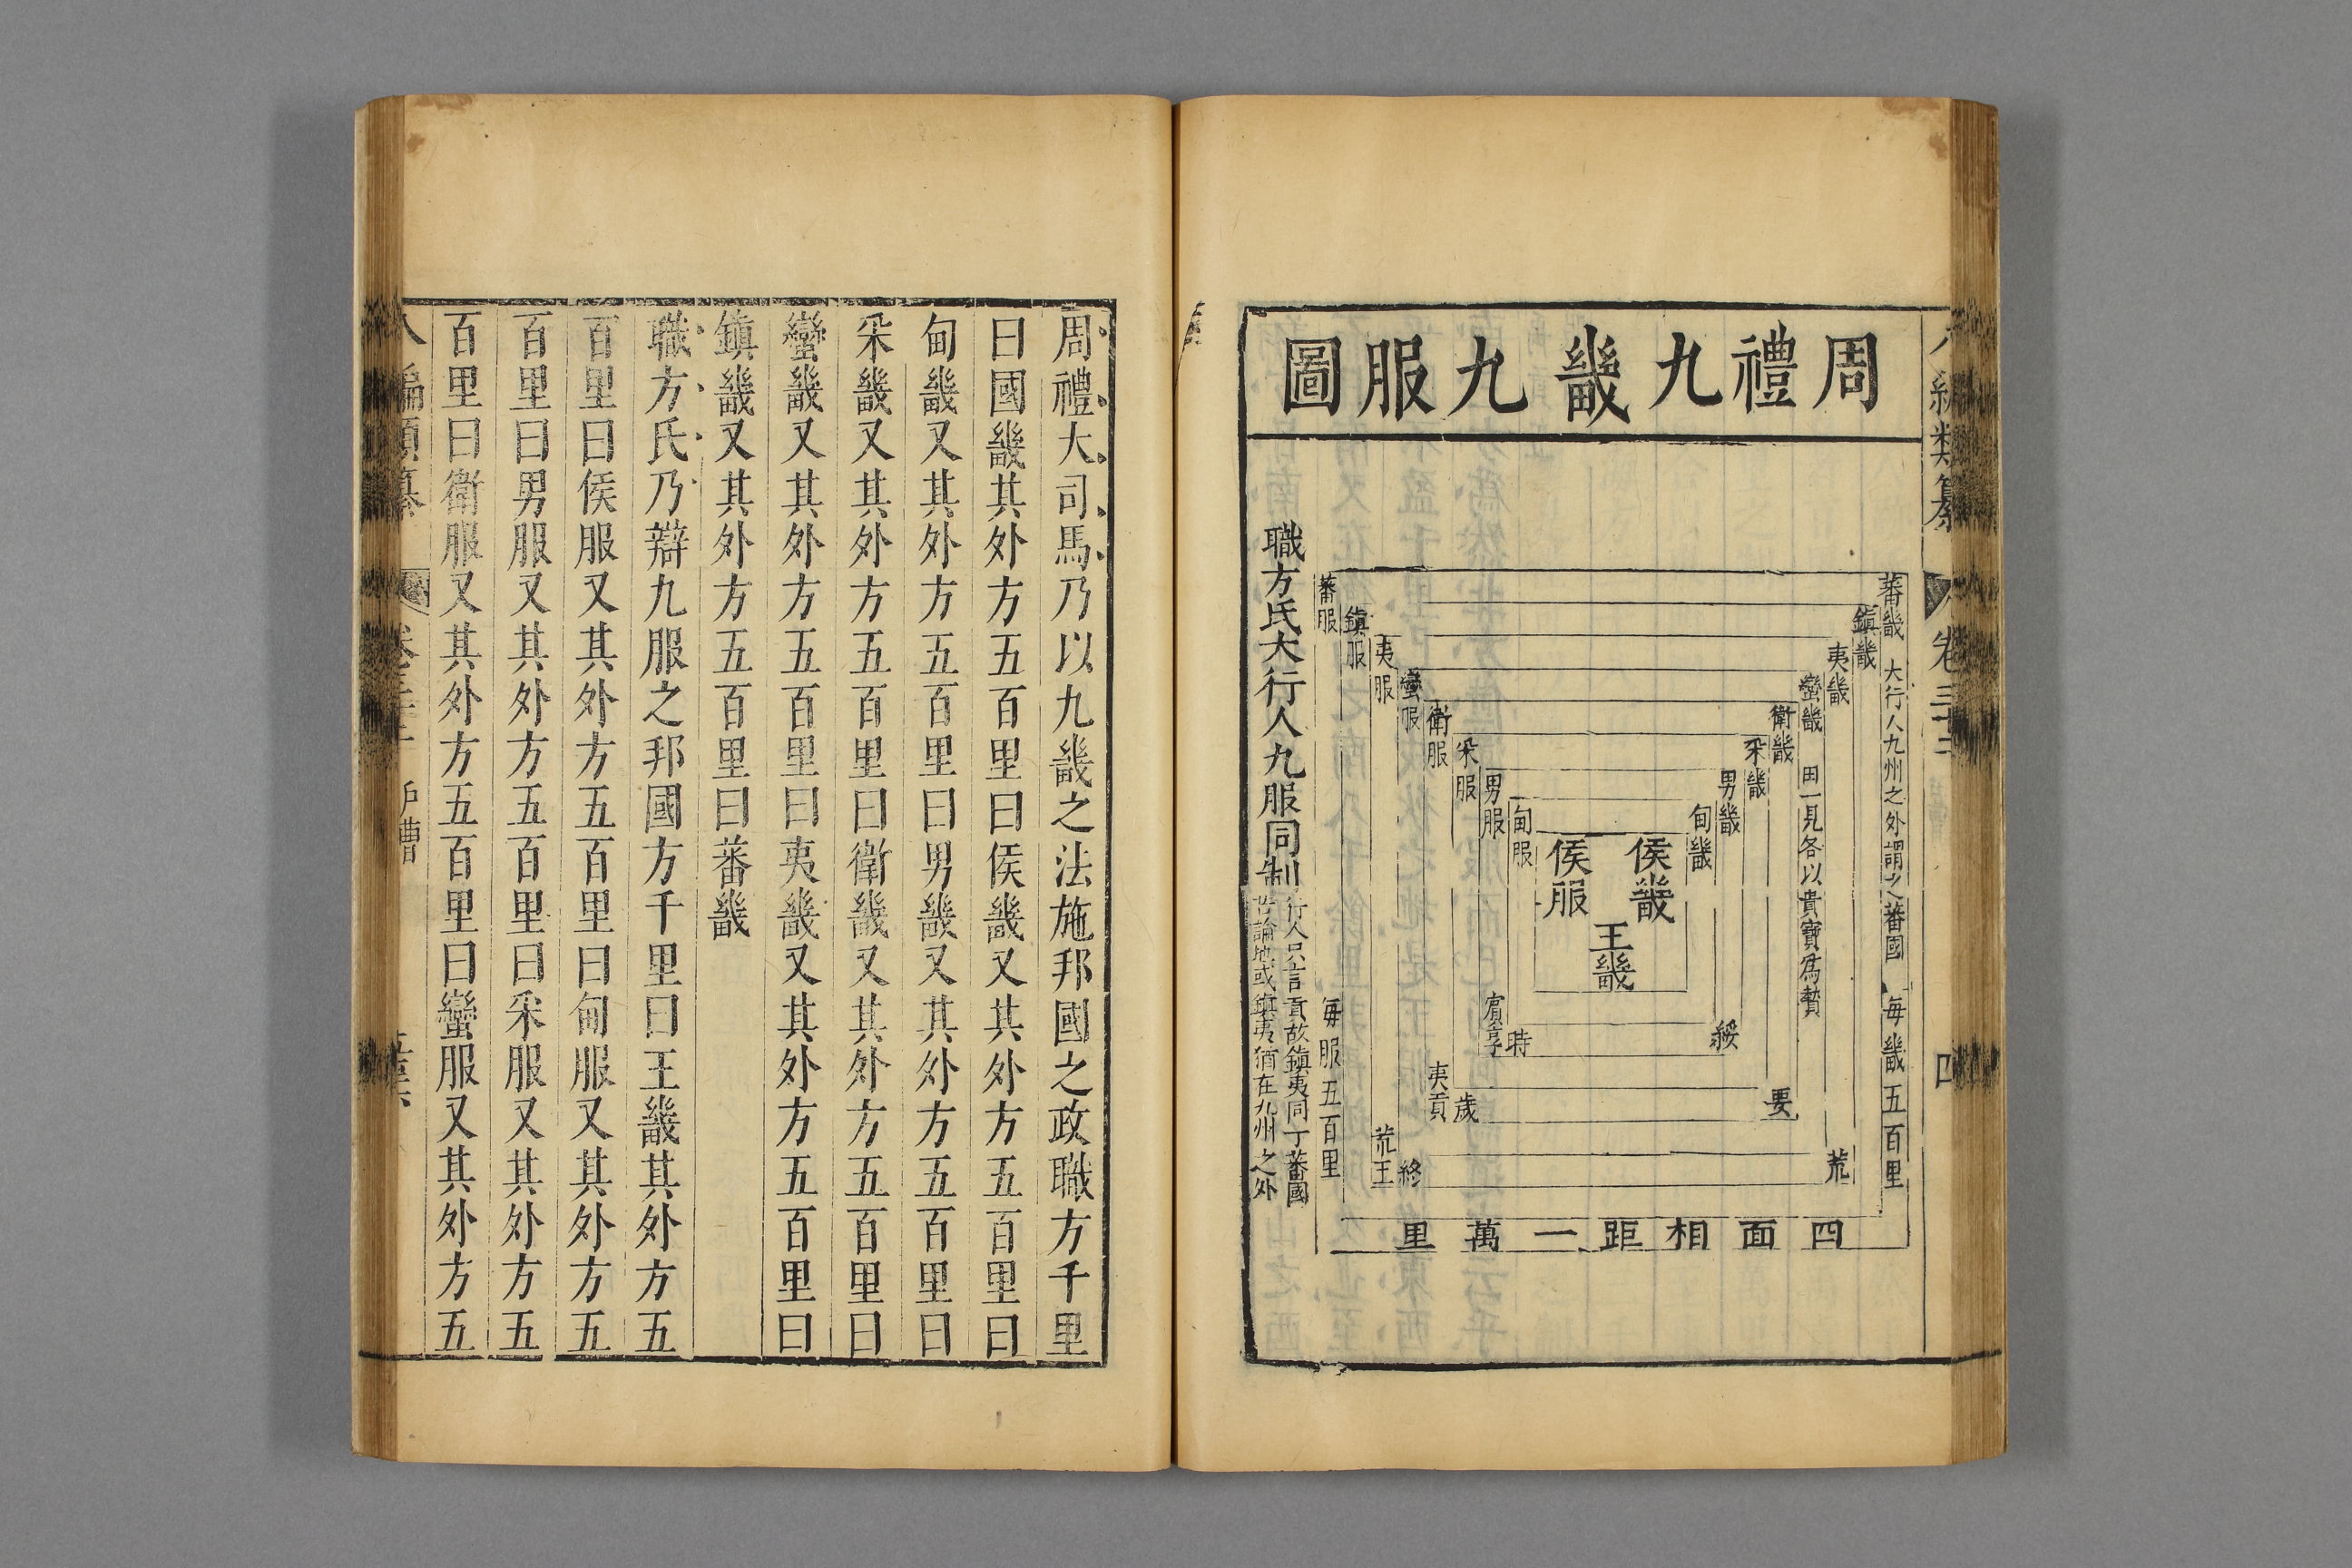 周禮九畿九服圖
蕃畿
大行人九州之外謂之蕃國
每畿五百里
鎮畿
夷畿
蠻畿
田一見各以貴寶爲贄
衛畿
采畿
男畿
甸畿
侯畿
王畿
侯服
甸服
男服
采服
衛服
蠻服
夷服
鎮服
蕃服
每服五百里
綏
要
荒
時
賓享
歲
夷貢
終
荒王
四面相距一萬里
職方氏大行人九服同制
行人只言貢故鎮夷同丁蕃國
論地或鎮夷猶在九州之外
類纂
卷三十三
四
周禮大司馬乃以九畿之法施邦國之政職方千里
曰國畿其外方五百里曰侯畿又其外方五百里曰
甸畿又其外方五百里曰男畿又其外方五百里曰
采畿又其外方五百里曰衛畿又其外方五百里曰
蠻畿又其外方五百里曰夷畿又其外方五百里曰
鎮畿又其外方五百里曰蕃畿
職方氏乃辯九服之邦國方千里曰王畿其外方五
百里曰侯服又其外方五百里曰甸服又其外方五
百里曰男服又其外方五百里曰采服又其外方五
百里曰衛服又其外方五百里曰蠻服又其外方五